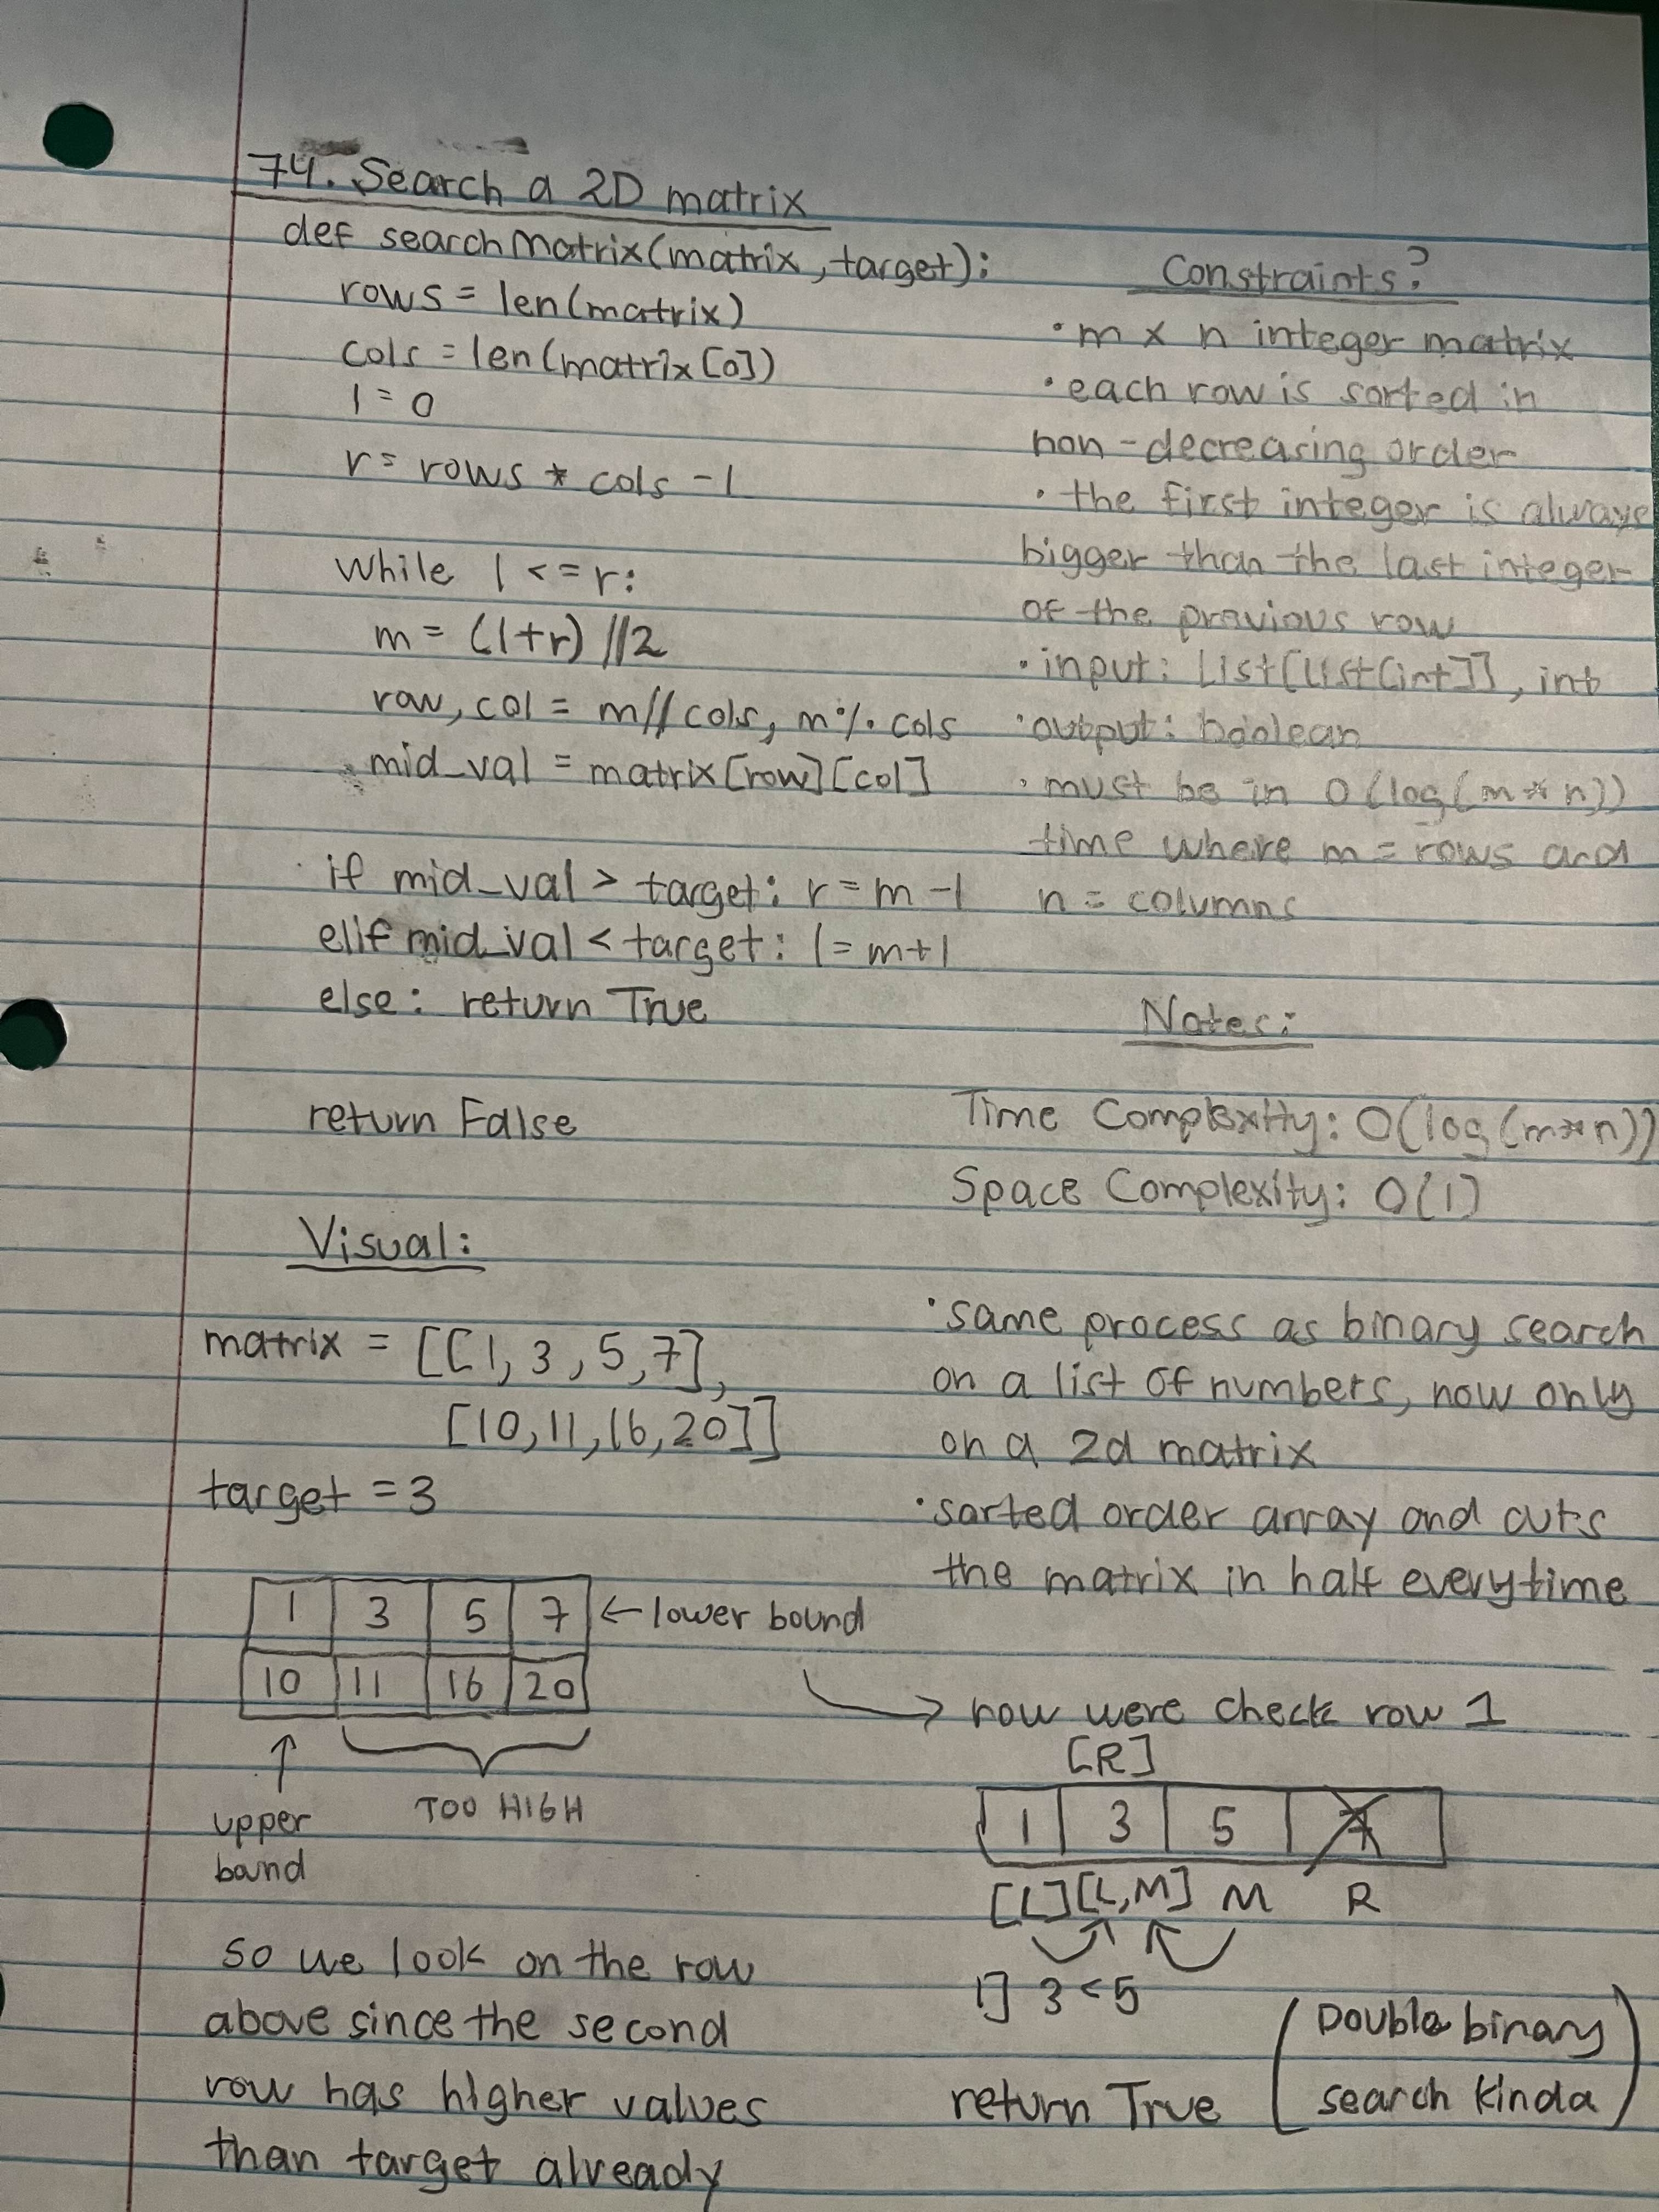 74. Search a 2D matrix
def searchMatrix(matrix, target):
rows = len(matrix)
cols = len(matrix[0])
l = 0
r = rows * cols - 1
while l <= r:
m = (l+r) // 2
row, col = m // cols, m % cols
mid_val = matrix[row][col]
if mid_val > target: r = m - 1
elif mid_val < target: l = m + 1
else: return True
return False
Constraints?
• m x n integer matrix
• each row is sorted in
non-decreasing order
• the first integer is always
bigger than the last integer
of the previous row
• input: List[List[int]], int
• output: boolean
• must be in O(log(m*n))
time where m = rows and
n = columns
Notes:
Time Complexity: O(log(m*n))
Space Complexity: O(1)
• same process as binary search
on a list of numbers, now only
on a 2d matrix
• sorted order array and cuts
the matrix in half everytime
Visual:
matrix = [[1, 3, 5, 7],
[10, 11, 16, 20]]
target = 3
1 3 5 7 ← lower bound
10 11 16 20
↑
upper
bound
TOO HIGH
so we look on the row
above since the second
row has higher values
than target already
→ now were check row 1
[R]
1 3 5 7
[L] [L,M] M R
1] 3 < 5
return True
(Double binary
search kinda)